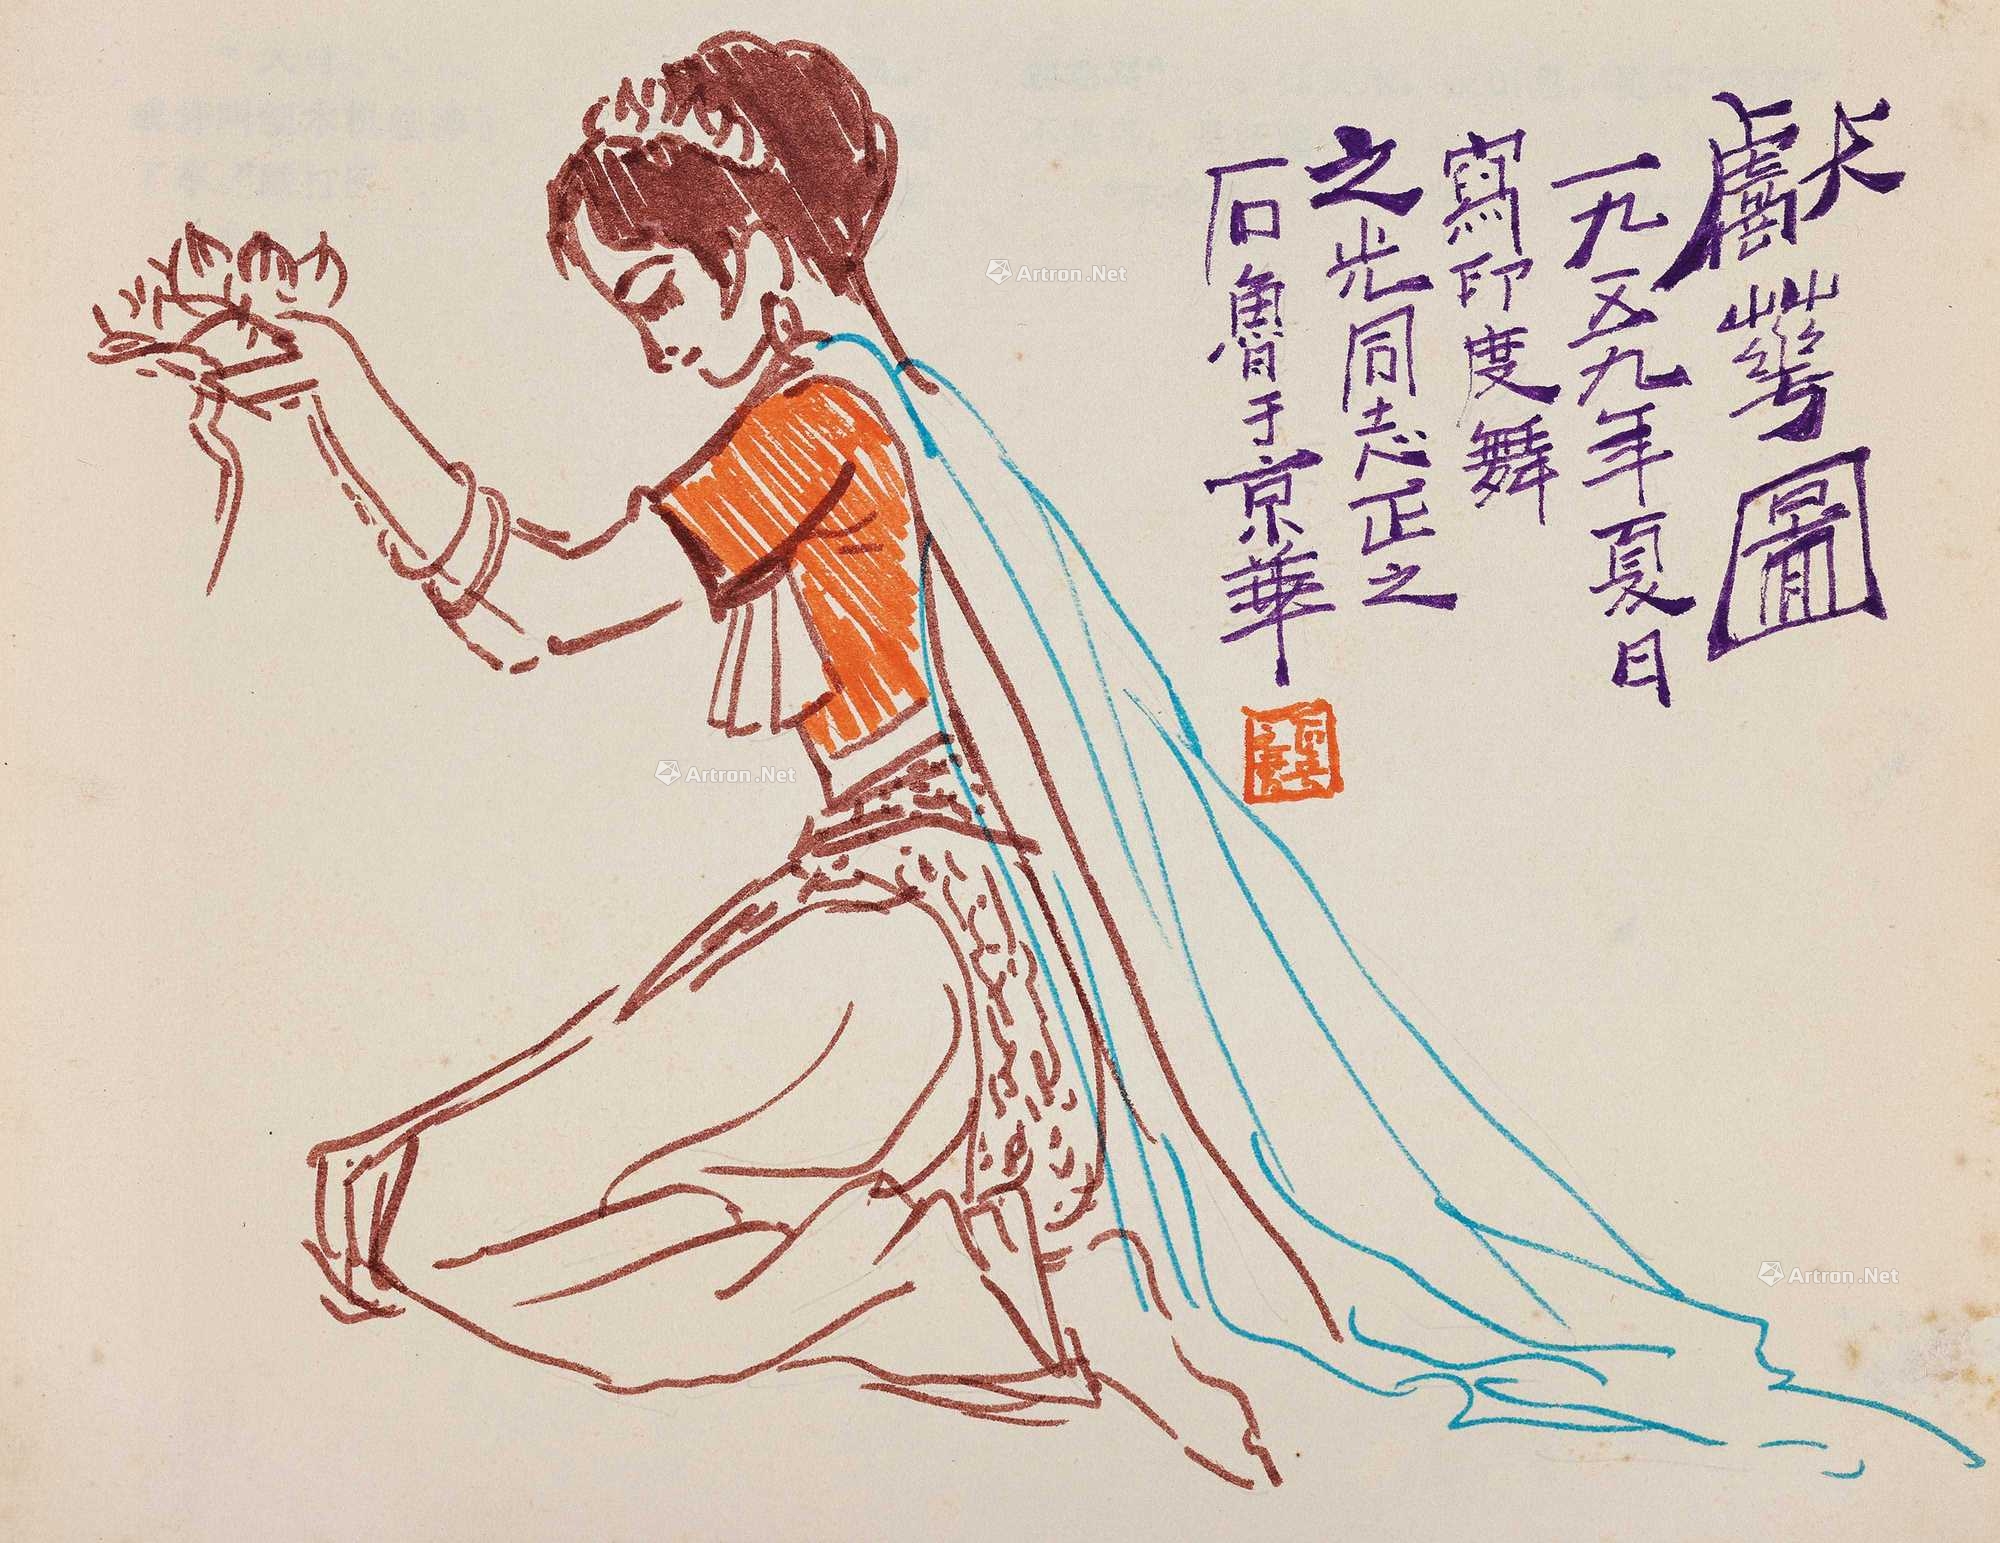 獻華圖
一九五九年夏日
寫印度舞
之光同志正之
石魯于京華
Artron.Net
Artron.Net
Artron.Net